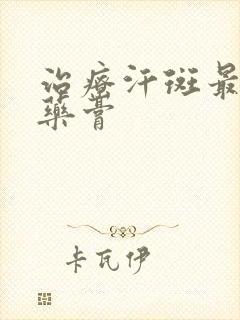 治療汗斑最
藥膏
卡瓦伊